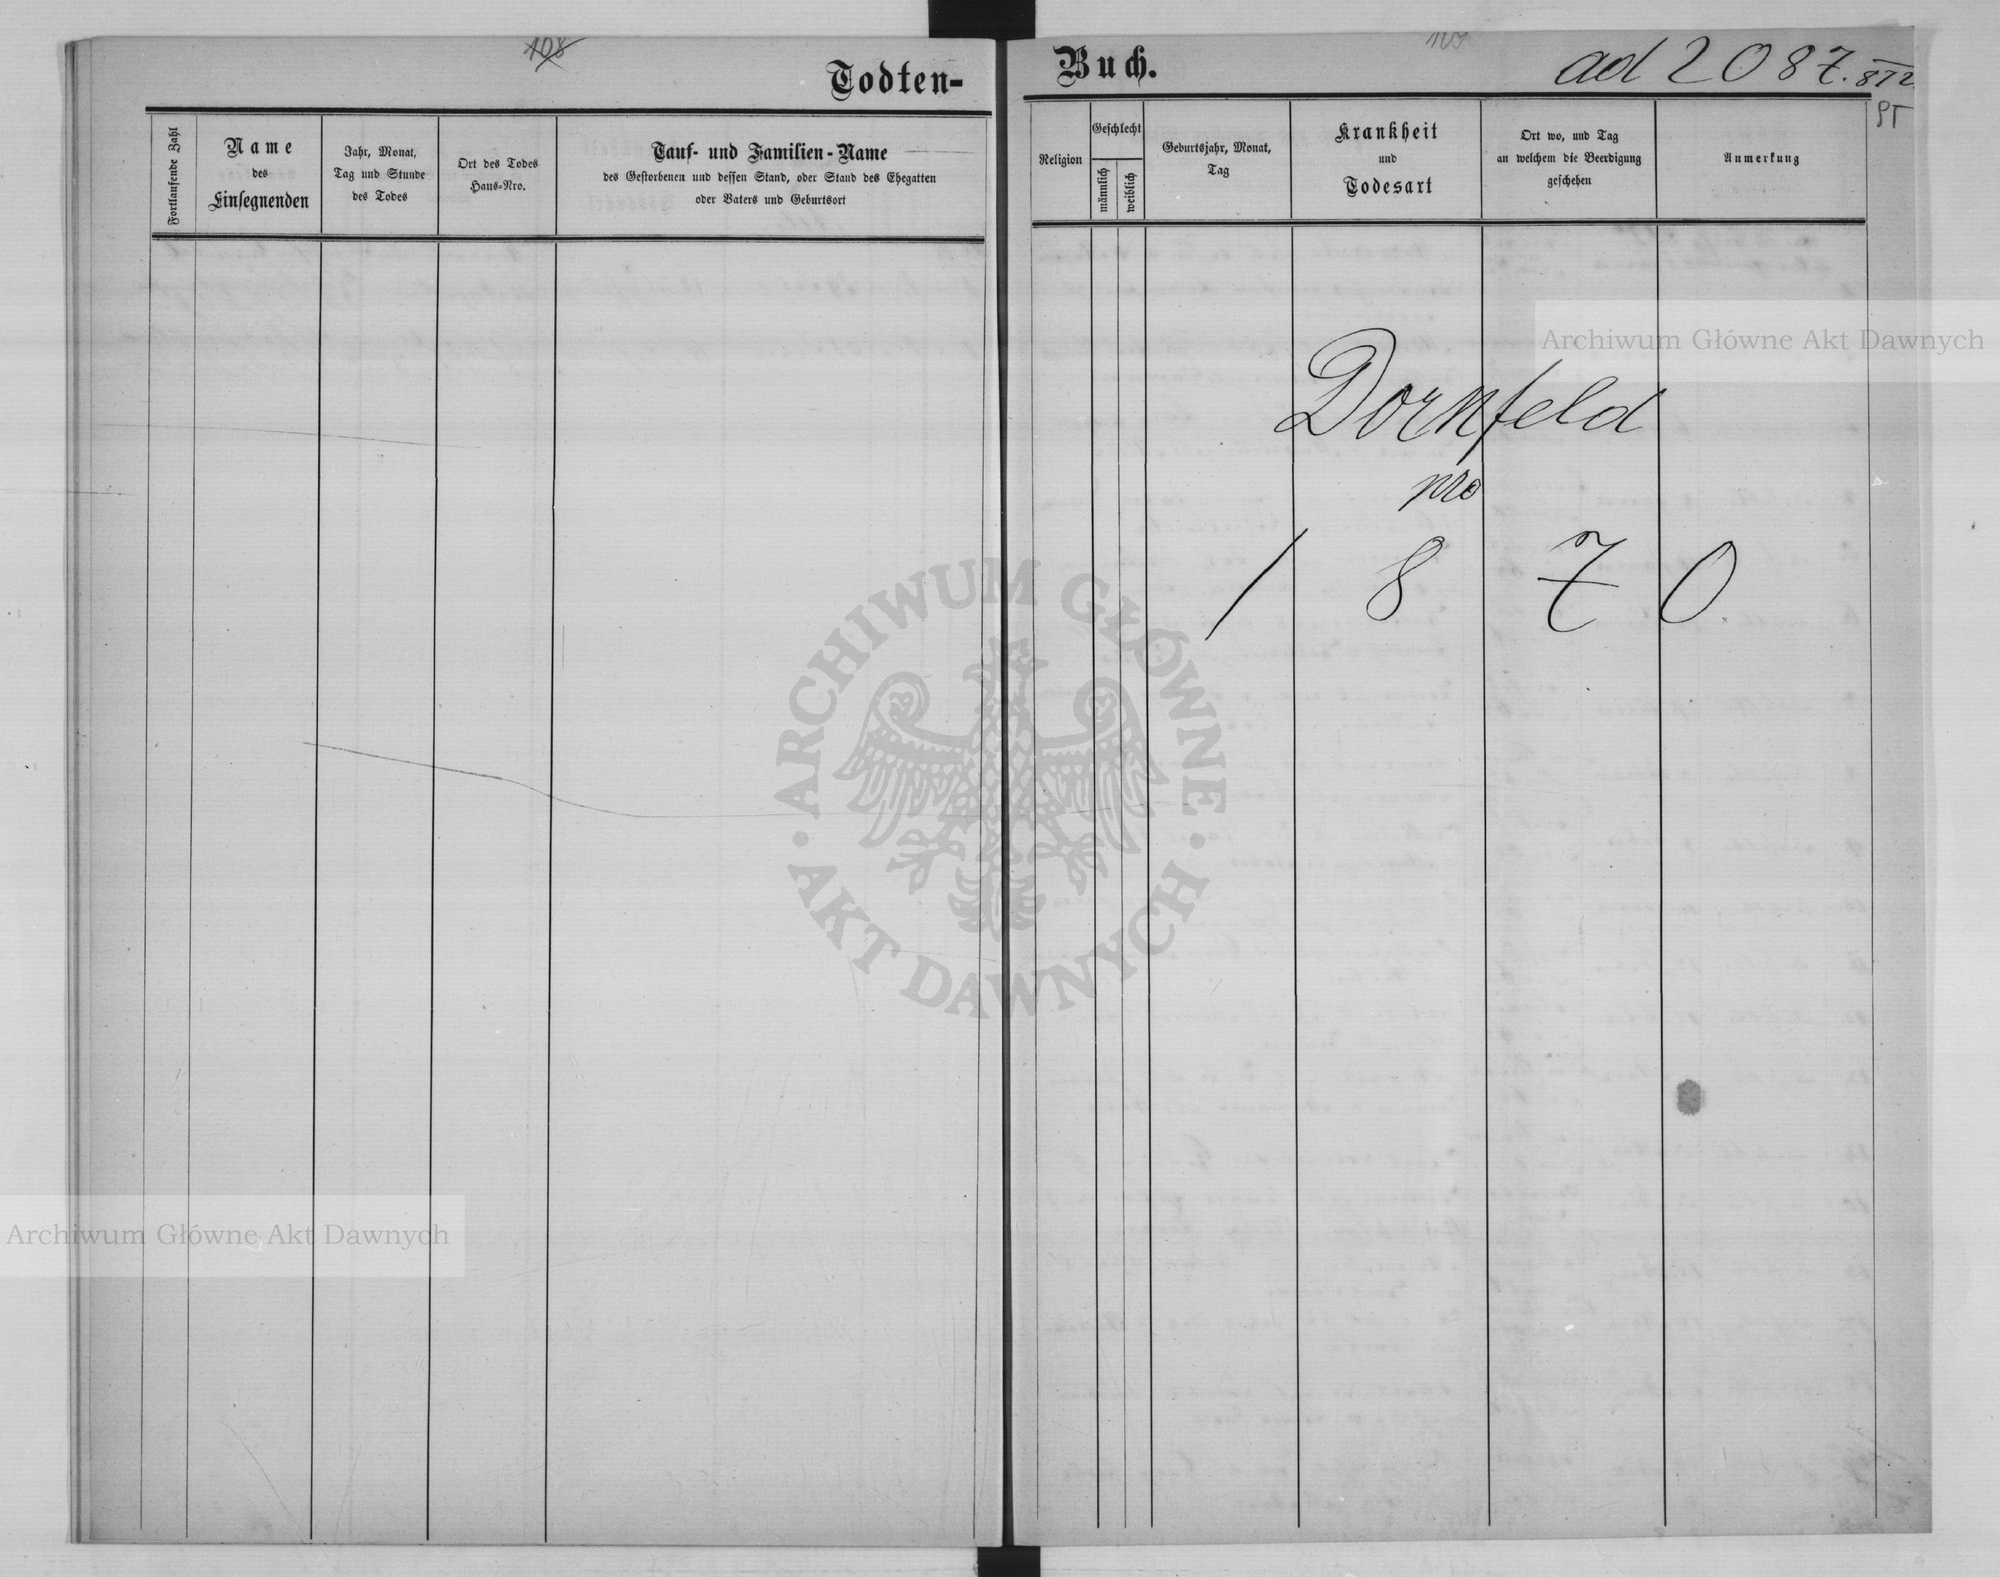 108
Todten-
Fortlaufende Zahl
Name
des
Einsegnenden
Jahr, Monat,
Tag und Stunde
des Todes
Ort des Todes
Haus-Nro.
Tauf- und Familien-Name
des Gestorbenen und dessen Stand, oder Stand des Ehegatten
oder Vaters und Geburtsort
Buch.
109
ad 2087.
Religion
Geschlecht
männlich
weiblich
Geburtsjahr, Monat,
Tag
Krankheit
und
Todesart
Ort wo, und Tag
an welchem die Beerdigung
geschehen
Anmerkung
Dornfeld
pro
1870.
Archiwum Główne Akt Dawnych
ARCHIWUM GŁÓWNE · AKT DAWNYCH ·
Archiwum Główne Akt Dawnych